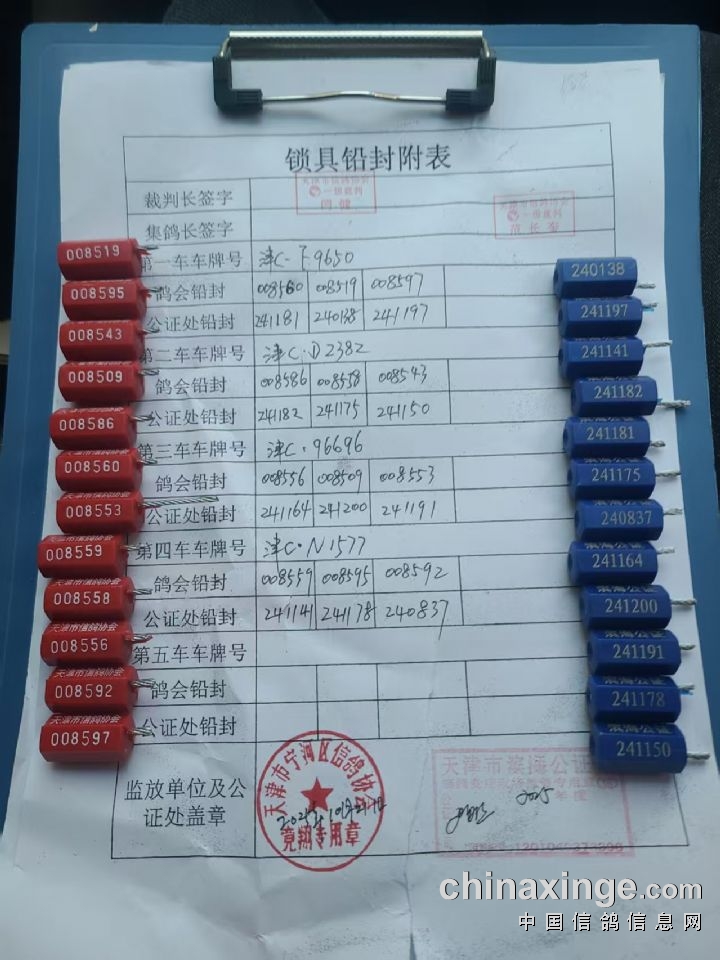 锁具铅封附表
裁判长签字
天津市信鸽协会
一级裁判
集鸽长签字
一级裁判
第一车车牌号 津C-F9650
鸽会铅封 008560 008519 008597
公证处铅封 241181 240138 241197
第二车车牌号 津C·D2382
鸽会铅封 008586 008558 008543
公证处铅封 241182 241175 241150
第三车车牌号 津C·96696
鸽会铅封 008556 008509 008553
公证处铅封 241164 241200 241191
第四车车牌号 津C·N1577
鸽会铅封 008559 008595 008592
公证处铅封 241141 241178 240837
第五车车牌号
鸽会铅封
公证处铅封
监放单位及公
证处盖章
天津市宁河区信鸽协会
竞翔专用章
天津市滨海公证
2025
008519
008595
008543
008509
008586
天津市信鸽协会
008560
008553
008559
天津市信鸽协会
008558
天津市信鸽协会
008556
008592
天津市信鸽协会
008597
240138
241197
241141
241182
241181
241175
240837
241164
241200
滨海公证
241191
241178
滨海公证
241150
chinaxinge.com
中国信鸽信息网